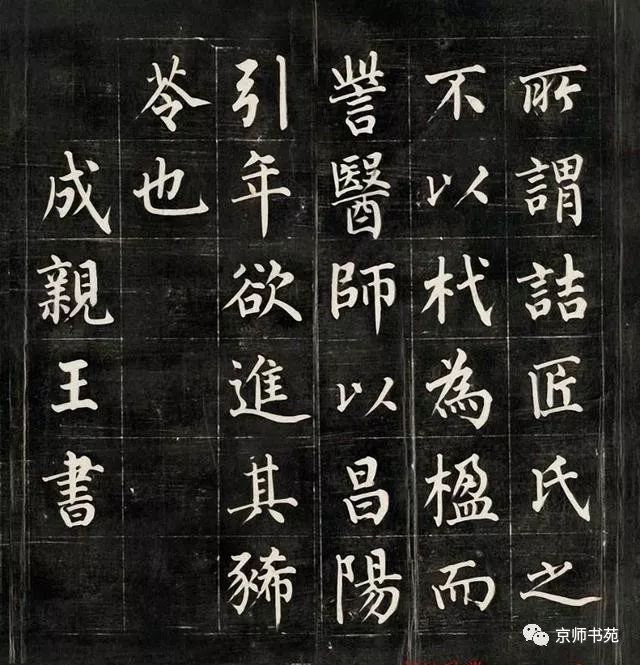 所謂詰匠氏之
不以杙為楹而
訾醫師以昌陽
引年欲進其豨
苓也
成親王書
京师书苑